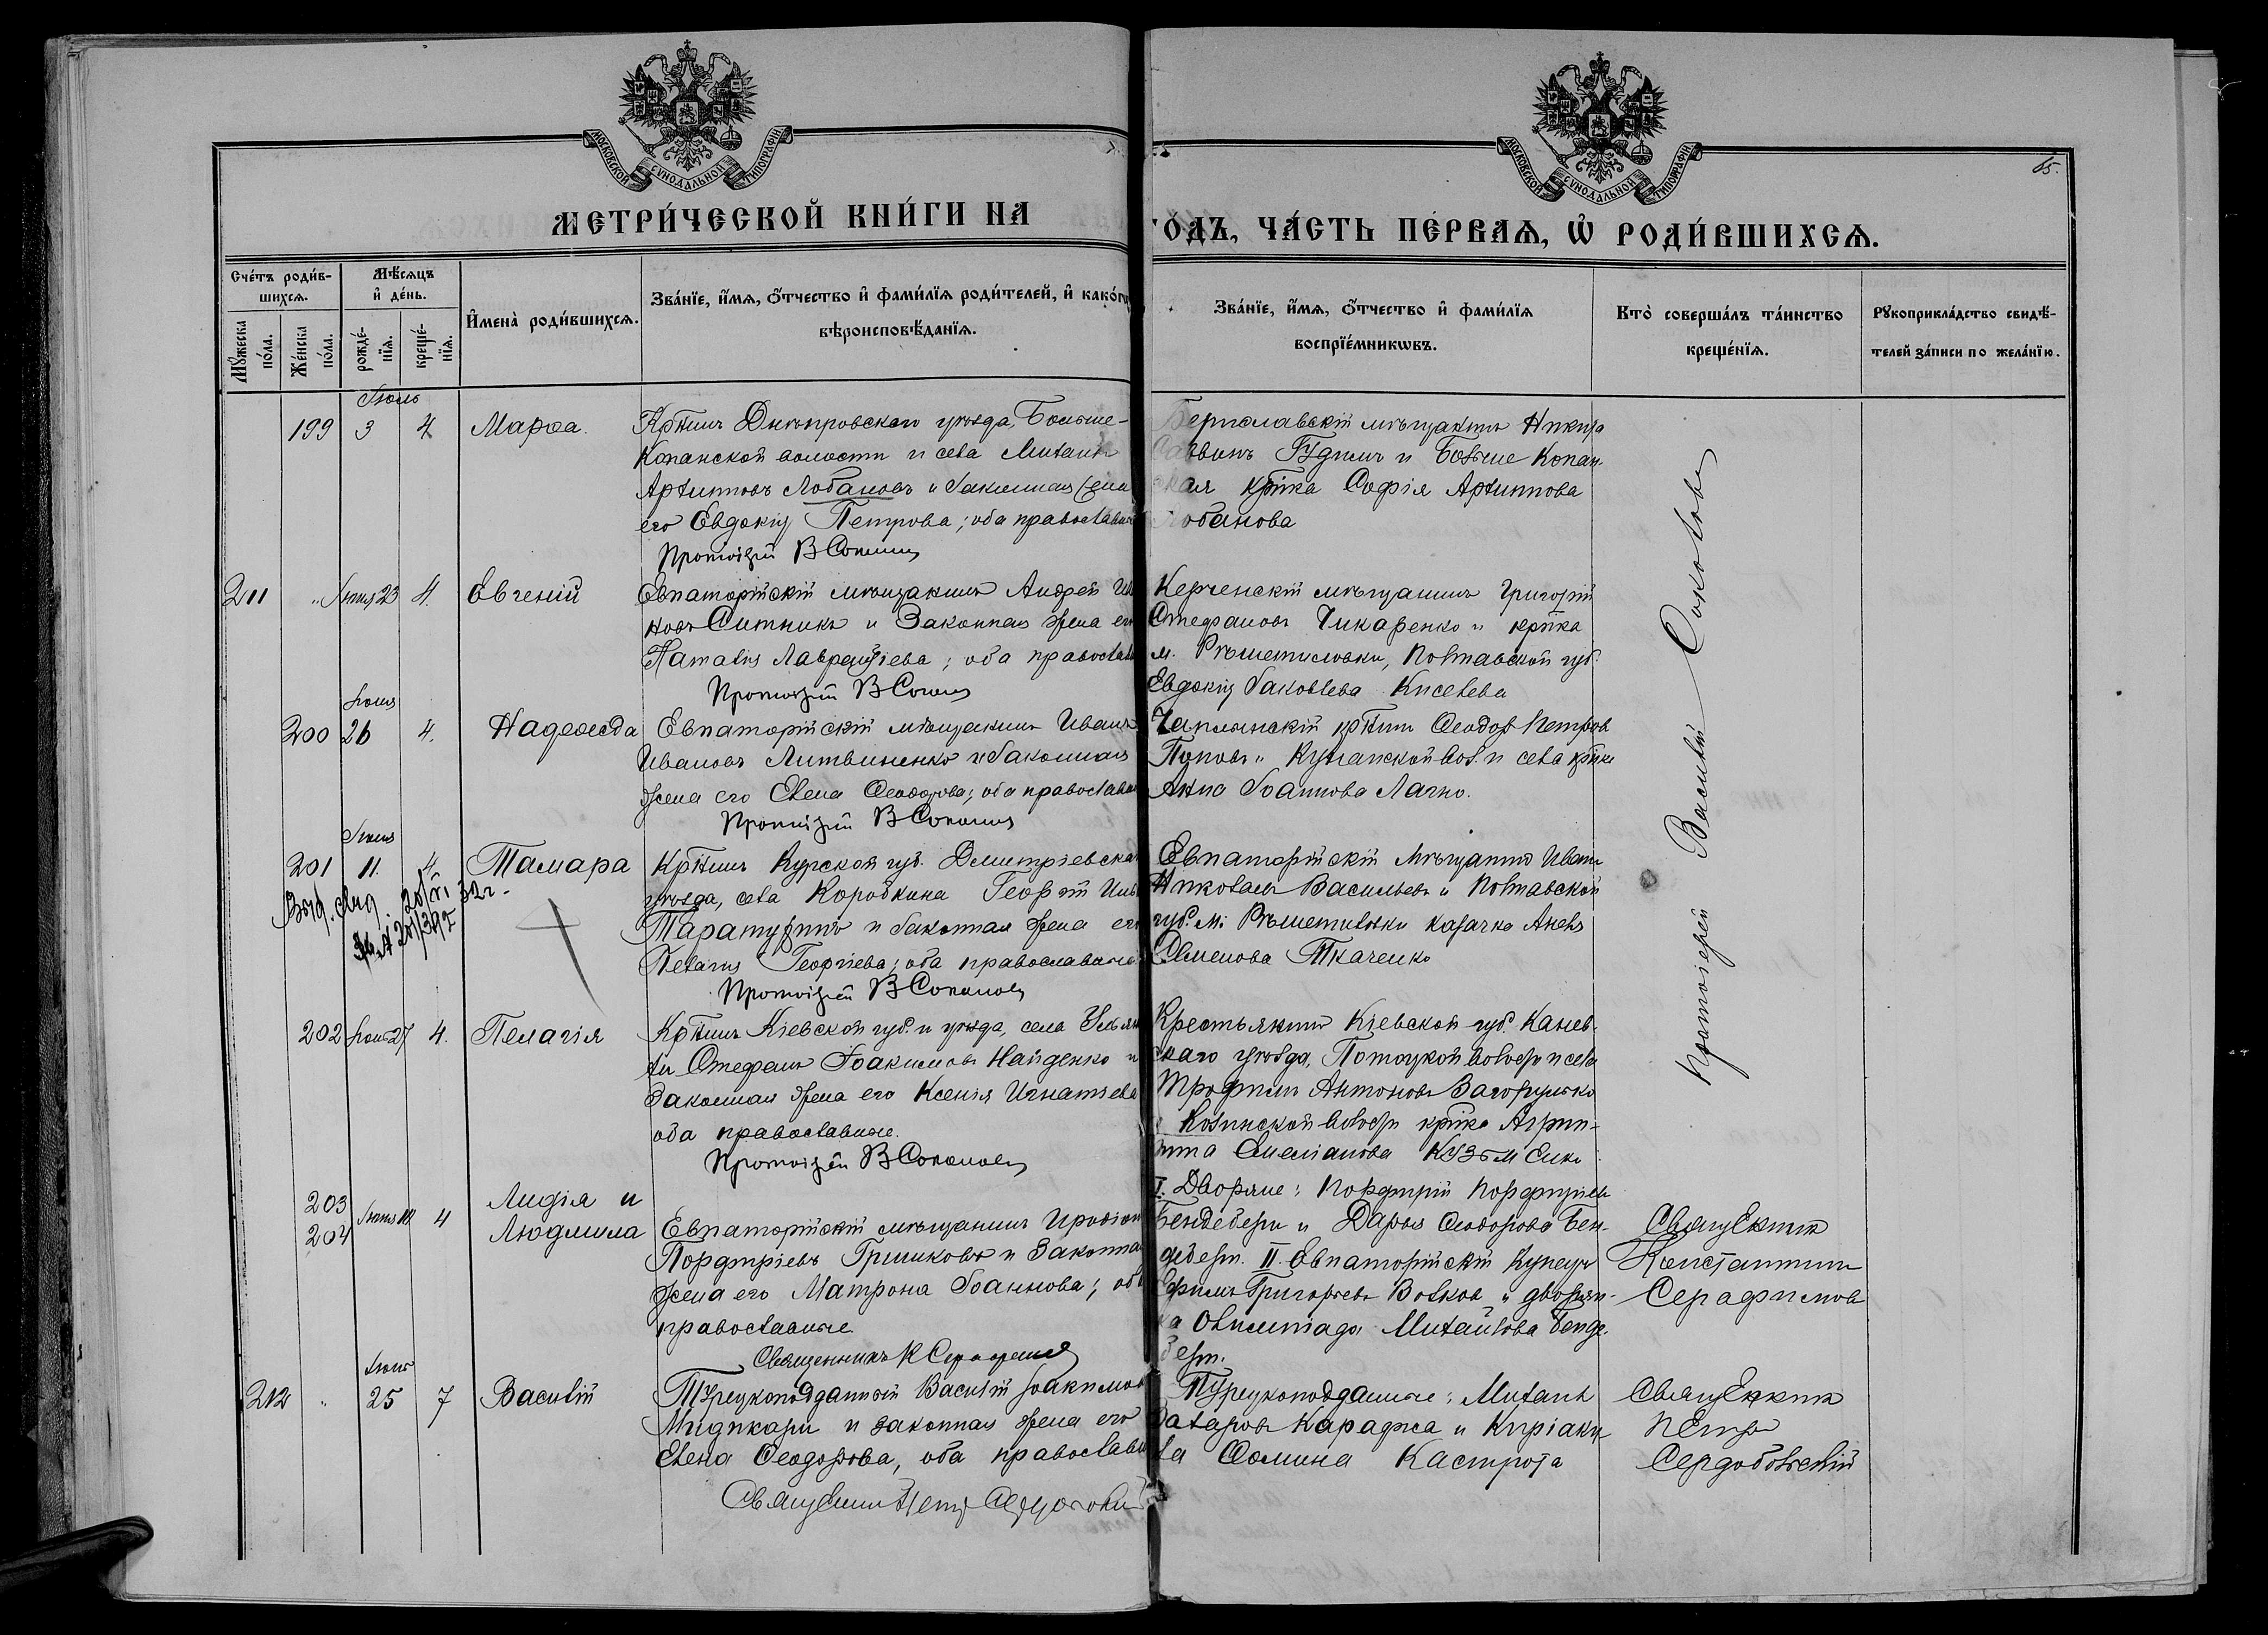 МОСКОВСКОЙ СѴНОДАЛЬНОЙ ТИПОГРАФІИ
МОСКОВСКОЙ СѴНОДАЛЬНОЙ ТИПОГРАФІИ
65.
МЕТРИ́ЧЕСКОЙ КНИ́ГИ НА
ГО́ДЪ, ЧА́СТЬ ПЕ́РВАѦ, Ѡ҆ РОДИ́ВШИХСѦ.
Сче́тъ роди́вшихсѧ.
Мꙋ́жеска по́ла.
Же́нска по́ла.
Мѣ́сѧцъ и҆ де́нь.
рожде́нїѧ.
креще́нїѧ.
И҆мена̀ роди́вшихсѧ.
Зва́нїе, и҆́мѧ, ѻ҆́тчество и҆ фами́лїѧ роди́телей, и҆ како́гѡ
вѣроисповѣ́данїѧ.
Зва́нїе, и҆́мѧ, ѻ҆́тчество и҆ фами́лїѧ
воспрїе́мникѡвъ.
Кто̀ соверша́лъ та́инство
креще́нїѧ.
Рꙋкоприкла́дство свидѣ́-
телей за́писи по жела́нїю.
Іюль
199 3 4 Марѳа.
Кртнинъ Днѣпровскаго уѣзда, Больше-
Копанской волости и села Михаилъ
Архиповъ Лобановъ и законная жена
его Евдокія Петрова; оба православные
Протоіерей В Соколовъ
Бериславскій мѣщанинъ Никита
Саввинъ Гудимъ и Больше Копан-
ская крт҃ка Софія Архипова
Лобанова
211 " Іюня 23 4. Евгеній
Евпаторійскій мѣщанинъ Андрей Ива
новъ Ситникъ и законная жена его
Наталія Лаврентіева; оба православ
Протоіерей В Соколовъ
Керченскій мѣщанинъ Григорій
Стефановъ Чикаренко и крт҃ка
м. Рѣшетиловки, Полтавской губ.
Евдокія Яковлева Киселева
Іюня
200 26 4. Надежда
Евпаторійскій мѣщанинъ Иванъ
Ивановъ Литвиненко и законная
жена его Елена Ѳеодорова; оба православные
Протоіерей В Соколовъ
Чаплынскій кртнинъ Ѳеодоръ Петровъ
Поповъ и вол. и села крт҃ка
Анна Іоаннова Лачко.
Іюня
201 11. 4. Тамара
32 г.
Кртнинъ Курской губ. Дмитріевскаго
уѣзда, села Коробкина Георгій
и законная жена его
Пелагія Георгіева; оба православные
Протоіерей В Соколовъ
Евпаторійскій мѣщанинъ Иванъ
Николаевъ Васильевъ и Полтавской
губ. м. Рѣшетиловки казачка
Семенова Ткаченко
202 Іюня 27 4. Пелагія
Кртнинъ Кіевской губ. и уѣзда, села
Стефанъ Іоакимовъ Найденко и
законная жена его Ксенія Игнатіева
оба православные.
Протоіерей В Соколовъ
Крестьянинъ Кіевской губ. Канев-
скаго уѣзда, Потоцкой волости и села
Трофимъ Антоновъ
Козинской волости крт҃ка Агрип-
пина Емеліанова Кузьменко
203
204 Іюня 4 Лидія и
Людмила
Евпаторійскій мѣщанинъ Иродіонъ
Порфиріевъ Гришковъ и законная
жена его Матрона Іоаннова; оба
православные
Священникъ К Серафимовъ
I. Дворяне: Порфирій Порфиріевъ
Бендебери и Дарья Ѳеодорова Бен-
дебери. II. Евпаторійскій купецъ
Ефимъ Григорьевъ Волковъ и дворян-
ка Олимпіада Михайлова Бенде-
бери.
Священникъ
Константинъ
Серафимовъ
Іюня
212 " 25 7 Василій
Турецкоподданный Василій Іоакимовъ
и законная жена его
Елена Ѳеодорова, оба православные
Священникъ Петръ Сердобольскій
Турецкоподданные: Михаилъ
Караджа и Киріаку-
ла Ѳомина
Священникъ
Петръ
Сердобольскій
Протоіерей Василій Соколовъ